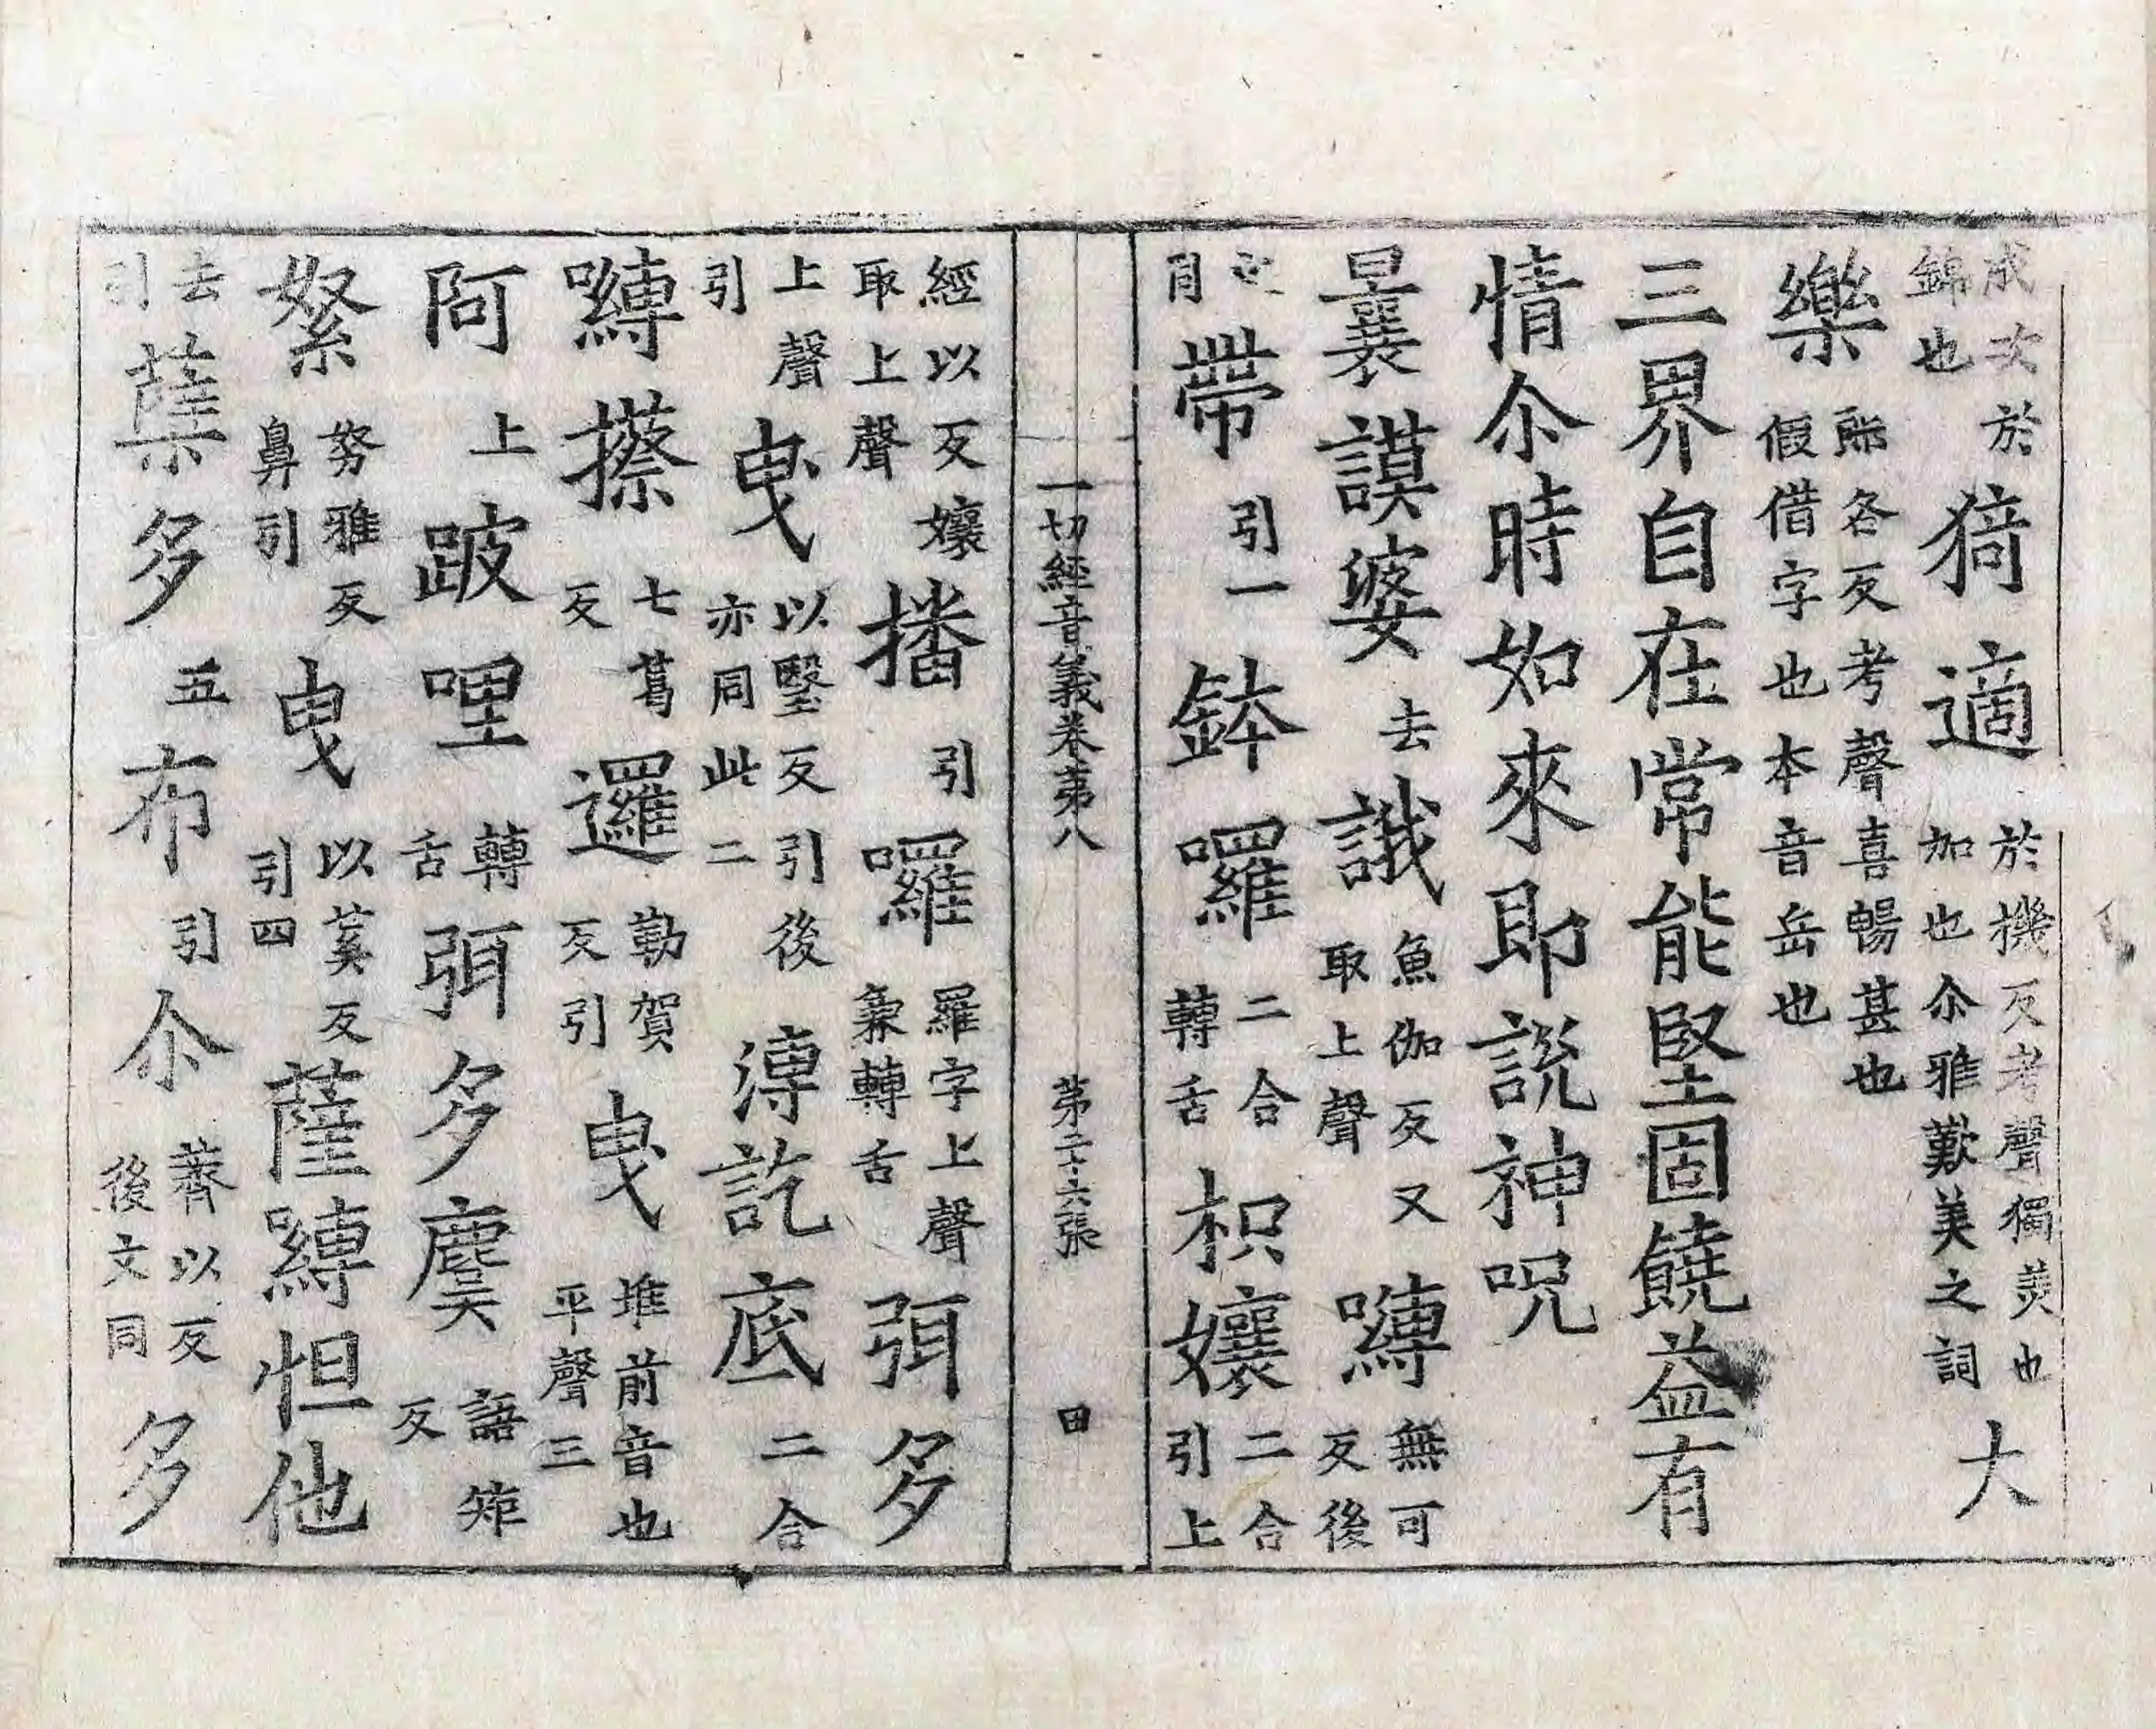 成次於錦也猗適於機反考聲獨美也加也尒雅歎美之詞大
樂郎各反考聲喜暢甚也假借字也本音岳也
三界自在常能堅固饒益有
情尒時如來即説神呪
曩謨婆去誐魚伽反又取上聲嚩無可反後
帶引一鉢囉二合轉舌枳孃二合引上
一切經音義卷苐八 苐二十六張 田
經以反孃取上聲播引囉羅字上聲兼轉舌弭多
上聲引曳以翳反引後亦同此二溥訖底二合
嚩攃七葛反邏勤賀反引曳堆前音也平聲三
阿上跛哩轉舌弭多麌語矩反
拏雅反鼻引曳以䓈反引四薩嚩怛他
去引蘖多五布引尒薺以反後文同多